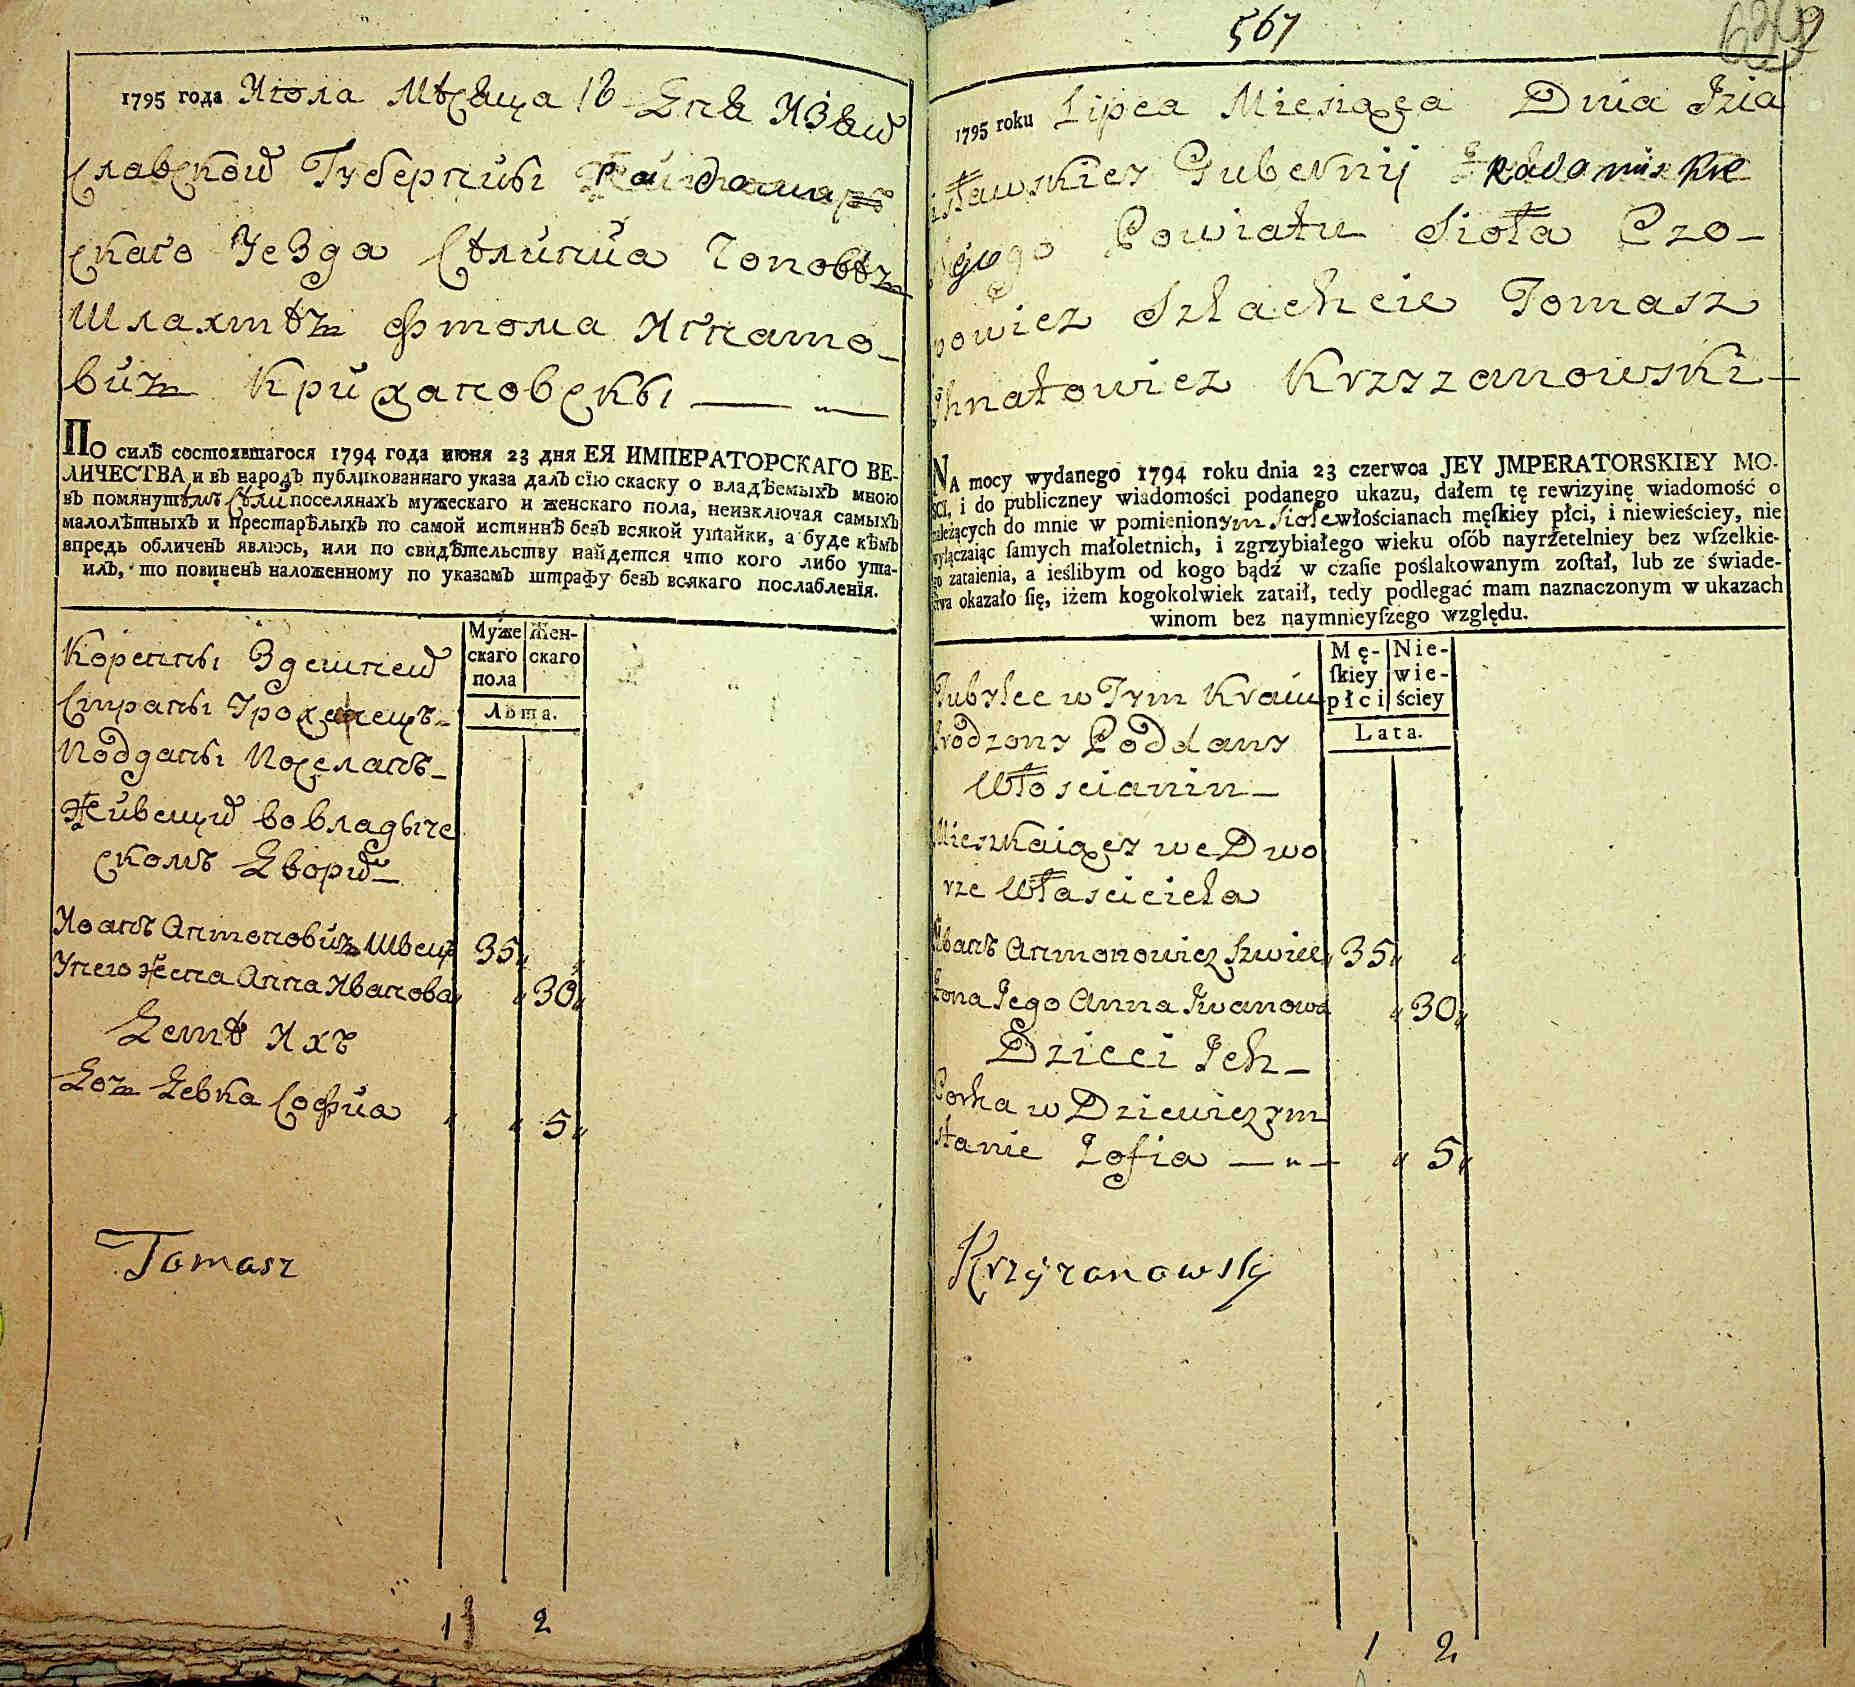 1795 года Июла Мѣсяца 18 Дня Изяй
славской Губерниы
скаго Уезда Сѣлиния Чоповѣч
Шляхтѣч Фтома Игнато-
вич Крижановскы
По силѣ состоявшагося 1794 года июня 23 дня ЕЯ ИМПЕРАТОРСКАГО ВЕ-
ЛИЧЕСТВА и въ народъ публикованнаго указа далъ сїю скаску о владѣемыхъ мною
въ помянутѣмъ Сѣли поселянахъ мужескаго и женскаго пола, неизключая самыхъ
малолѣтныхъ и престарѣлыхъ по самой истиннѣ безъ всякой утайки, а буде кѣмъ
впредь обличенъ явлюсь, или по свидѣтельству найдется что кого либо ута-
илъ, то повиненъ наложенному по указамъ штрафу безъ всякаго послабленїя.
Муже
скаго
пола
Жен-
скаго
Лѣта.
Коренны Здешней
Страны Уроженецъ-
Подданы Поселанъ-
Живещий во владыче
скомъ Дворий-
Иоанъ Антоновичъ Швецъ 35
Унего жена Анна Иванова 30
Детѣ Ихъ
Доч Девка Софиа 5
Tomasz
1 2
567
1795 roku Lipca Miesiąca Dnia Izia
sławskiey Gubernij Radomiskie
go Powiatu Sioła Czo-
powicz Szlachcic Tomasz
Ihnatowicz Krzyzanowski-
NA mocy wydanego 1794 roku dnia 23 czerwca JEY JMPERATORSKIEY MO-
ŚCI, i do publiczney wiadomości podanego ukazu, dałem tę rewizyinę wiadomość o
należących do mnie w pomienionym Siole włościanach męſkiey płci, i niewieściey, nie
wyłączaiąc ſamych małoletnich, i zgrzybiałego wieku osób nayrzetelniey bez wſzelkie-
go zataienia, a ieślibym od kogo bądź w czaſie poślakowanym zoſtał, lub ze świade-
ctwa okazało ſię, iżem kogokolwiek zataił, tedy podlegać mam naznaczonym w ukazach
winom bez naymnieyſzego względu.
Mę-
ſkiey
płci
Nie-
wie-
ściey
Lata.
Tubylec w Tym Kraiu
Urodzony Poddany
Włoscianin-
Mieszkaiący we Dwo
rze Własciciela
Иванъ Antonowicz Szwiec 35
Żona Jego Anna Iwanowa 30
Dzieci Ich-
Corka w Dziewiczym
stanie Zofia 5
Krzyżanowsky
1 2